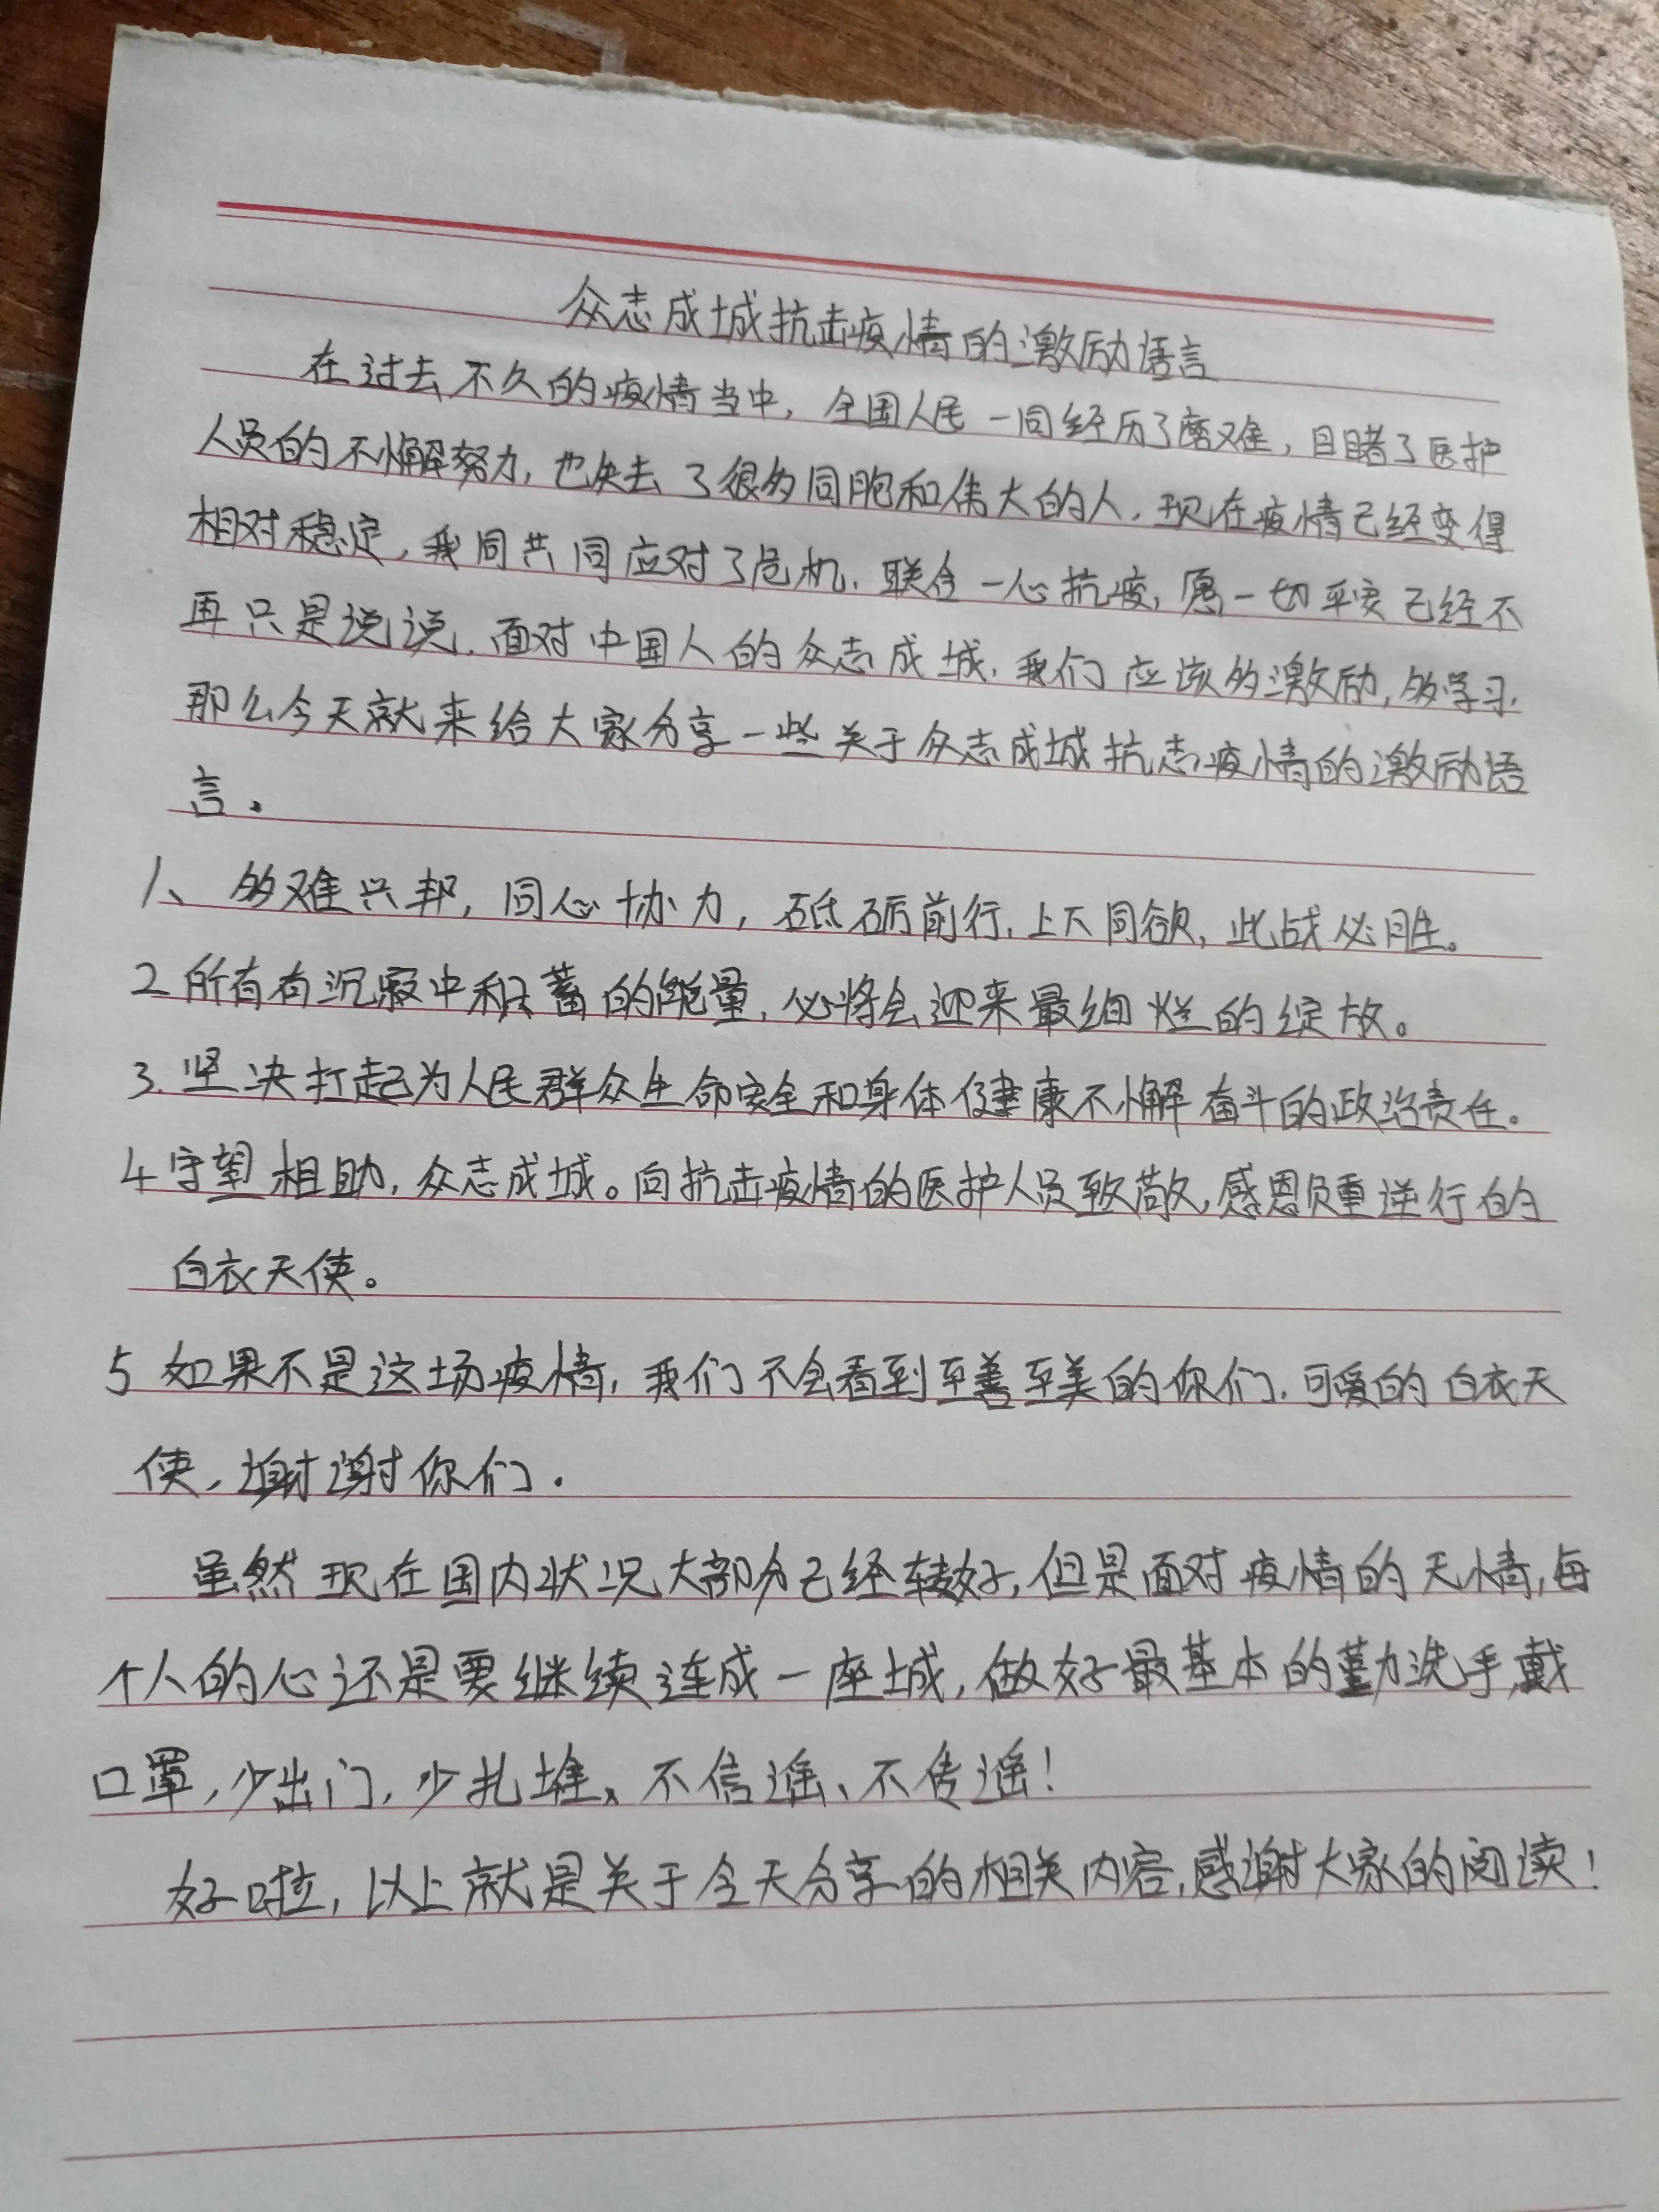 众志成城抗击疫情的激励语言
在过去不久的疫情当中，全国人民一同经历了磨难，目睹了医护
人员的不懈努力，也失去了很多同胞和伟大的人。现在疫情已经变得
相对稳定，我同共同应对了危机．联合一心抗疫，愿一切平安已经不
再只是说说．面对中国人的众志成城．我们应该多激励，多学习．
那么今天就来给大家分享一些关于众志成城抗志疫情的激励语
言．
1、多难兴邦，同心协力，砥砺前行．上下同欲，此战必胜。
2 所有有沉寂中积蓄的能量，必将会迎来最细烂的绽放。
3. 坚决扛起为人民群众生命安全和身体健康不懈奋斗的政治责任。
4 守望相助，众志成城。向抗击疫情的医护人员致敬，感恩负重逆行的
白衣天使。
5 如果不是这场疫情，我们不会看到至善至美的你们．可爱的白衣天
使，谢谢你们．
虽然现在国内状况大部分已经转好，但是面对疫情的无情，每
个人的心还是要继续连成一座城，做好最基本的勤洗手，戴
口罩，少出门，少扎堆、不信谣、不传谣！
好啦，以上就是关于今天分享的相关内容，感谢大家的阅读！